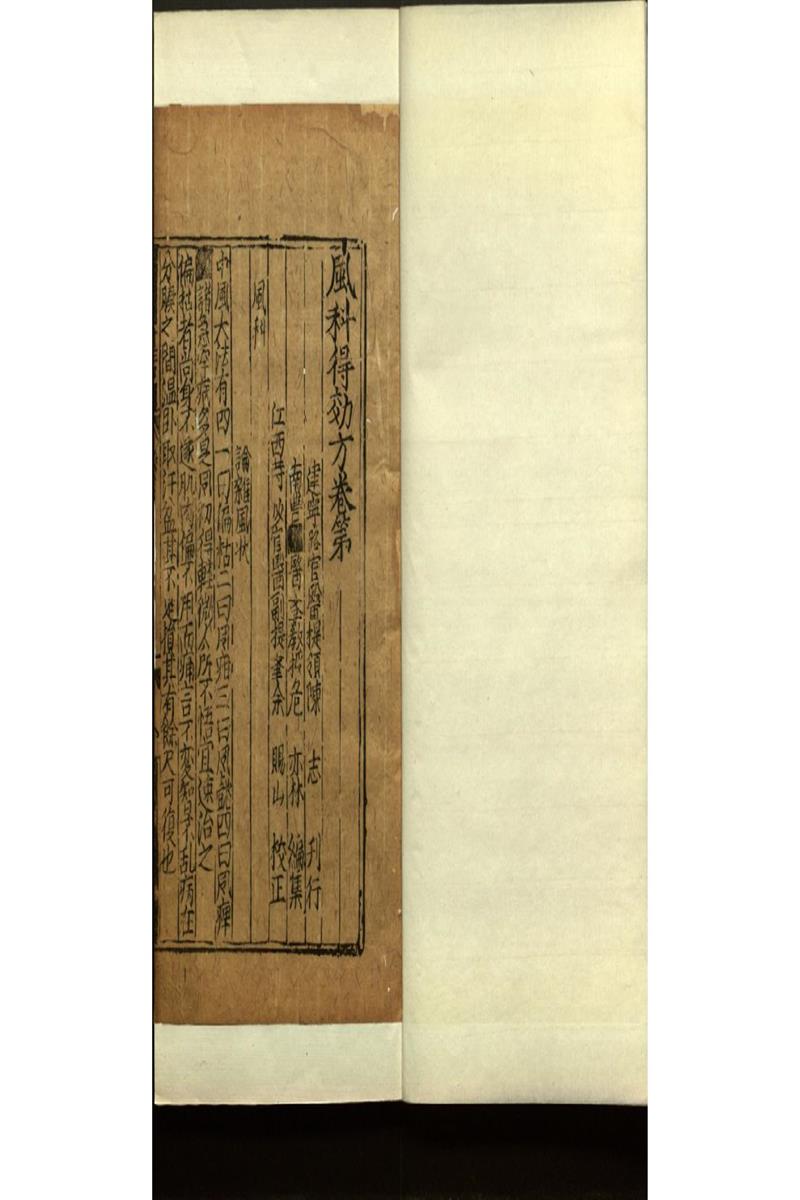 風科得効方卷第
建寧路官醫提領陳　志　刊行
南豐醫學教授危　亦林　編集
江西等處官醫副提舉余　賜山　校正
風科
論雜風狀
中風大法有四一曰偏枯二曰風痱三曰風懿四曰風痹
諸急卒病多是風初得輕微人所不悟宜速治之
偏枯者半身不遂肌肉偏不用而痛言不變知不乱病在
分腠之間温臥取汗益其不足損其有餘乃可復也